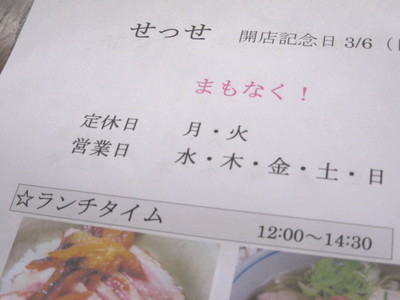 せっせ 開店記念日 3/6（
まもなく！
定休日 月・火
営業日 水・木・金・土・日
☆ランチタイム 12:00～14:30